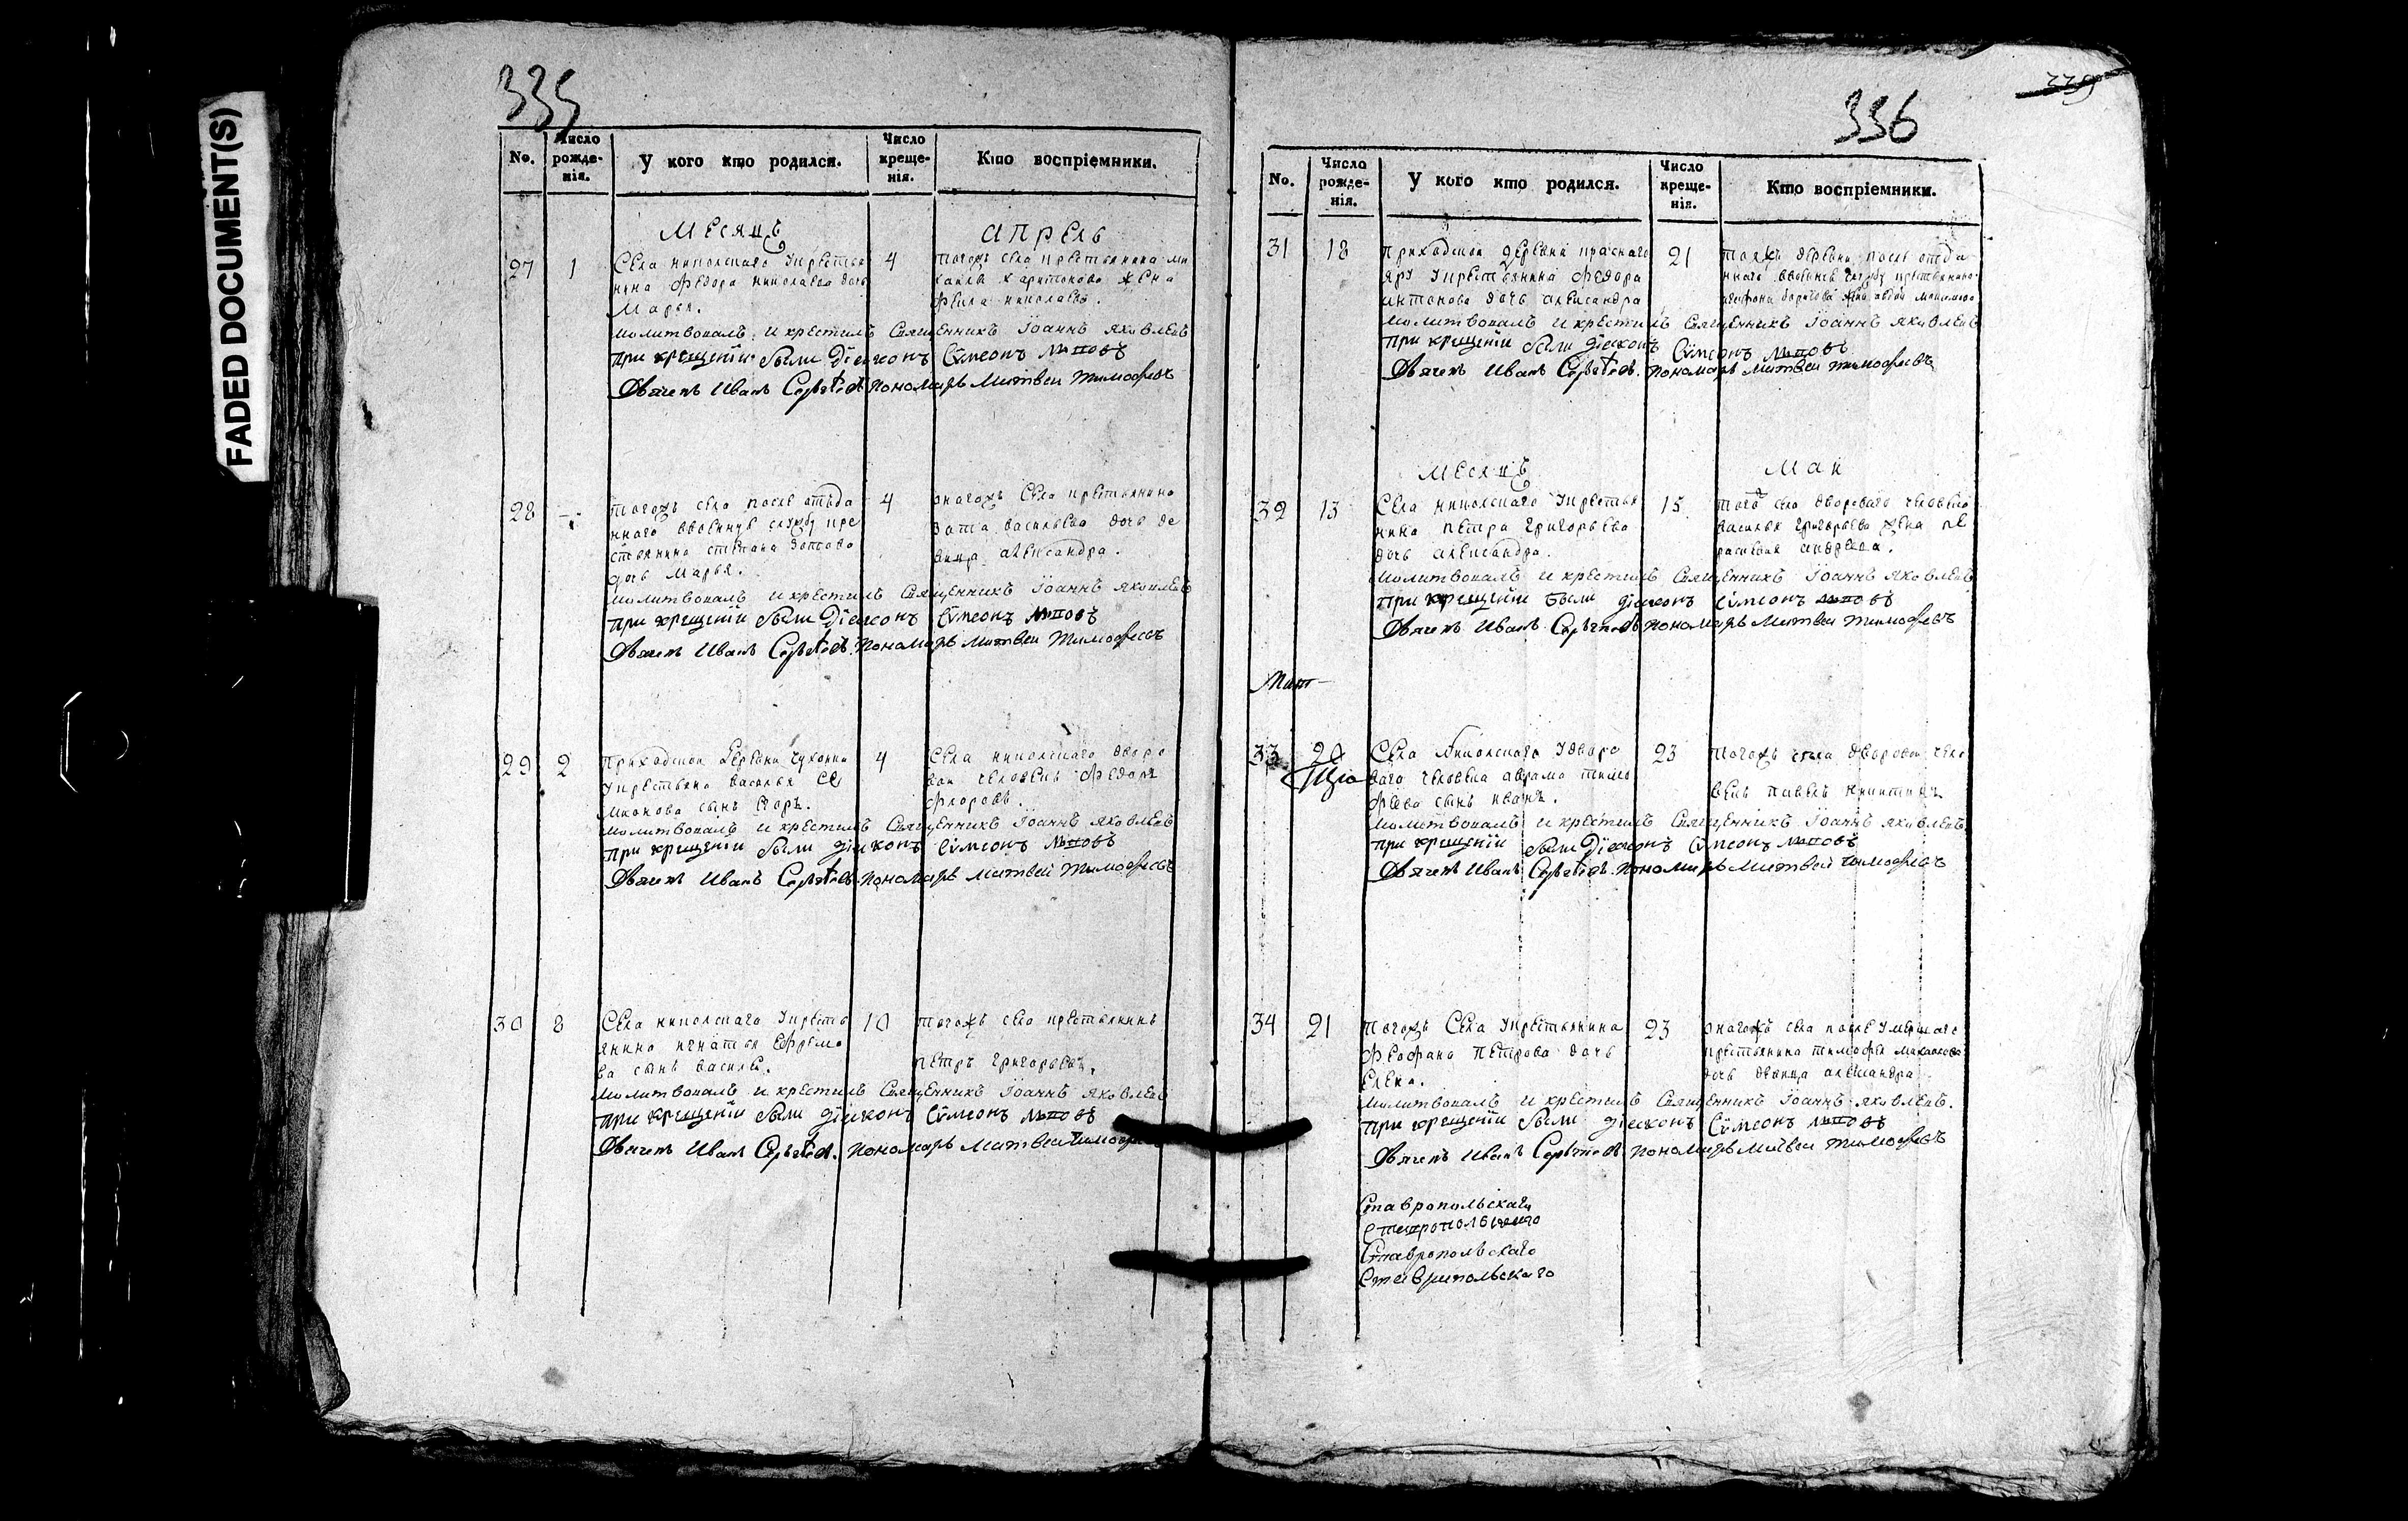 FADED DOCUMENT(S)
335
No.
Число рожде-нія.
У кого кто родился.
Число креще-нія.
Кто воспріемники.
Месяцъ
апрель
27
1
Села николскаго укрестья
нина Федора николаева дочь
Марья.
4
тогожъ села крестьянина ми
хаила харитонова жена
Фекла николаева.
молитвовалъ и крестилъ Священникъ Іоаннъ яковлевъ
при крещеніи были Діаконъ Сѵмеонъ
Дьячекъ Иванъ Сергѣевъ пономарь Матвеи тимофеевъ
28
тогожъ села после отъда
ннаго ввоинскую службу кре
стьянина степана
дочь Марья.
4
оногожъ Села крестьянина
васильева дочь де
вица александра.
молитвовалъ и крестилъ Священникъ Іоаннъ яковлевъ
при крещеніи были Діаконъ Сѵмеонъ
Дьячекъ Иванъ Сергѣевъ пономарь Матвеи тимофеевъ
29
2
Приходской деревни
укрестьяна василья се
мионова сынъ Егоръ.
4
Села николскаго дворо
вои человекъ Федоръ
Флоровъ.
молитвовалъ и крестилъ Священникъ Іоаннъ яковлевъ
при крещеніи были діаконъ Сѵмеонъ
Дьячекъ Иванъ Сергѣевъ пономарь Матвеи тимофеевъ
30
8
Села николскаго укресть
янина игнатья Ефремо
ва сынъ василеи.
10
тогожъ села крестьянинъ
петръ григорьевъ.
молитвовалъ и крестилъ Священникъ Іоаннъ яковлевъ
при крещеніи были діаконъ Сѵмеонъ
Дьячекъ Иванъ Сергѣевъ. пономарь Матвеи тимофеевъ
336
No.
Число рожде-нія.
У кого кто родился.
Число креще-нія.
Кто воспріемники.
31
18
Приходской деревни краснаго
яру укрестьянина Федора
антонова дочь александра
21
тояжъ деревни после отда
ннаго ввоинскую службу крестьянина
жена
молитвовалъ и крестилъ Священникъ Іоаннъ яковлевъ
при крещеніи были діаконъ Сѵмеонъ
Дьячекъ Иванъ Сергѣевъ. пономарь Матвеи тимофеевъ
Месяцъ
маи
32
13
Села николскаго укрестья
нина петра григорьева
дочь александра.
15
тогожъ села двороваго человека
василья григорьева жена пе
расковья андреева.
молитвовалъ и крестилъ Священникъ Іоаннъ яковлевъ
при крещеніи были діаконъ Сѵмеонъ
Дьячекъ Иванъ Сергѣевъ пономарь Матвеи тимофеевъ
33
20
Села Николскаго удворо
ваго человека аврама тимо
феева сынъ иванъ.
23
тогожъ села дворовои чело
векъ павелъ никитинъ
молитвовалъ и крестилъ Священникъ Іоаннъ яковлевъ.
при крещеніи были Діаконъ Сѵмеонъ
Дьячекъ Иванъ Сергѣевъ. пономарь Матвеи тимофеевъ
34
21
тогожъ Села укрестьянина
Феофана петрова дочь
Елена.
23
оногожъ села после умершаго
крестьянина тимофея
дочь девица александра
молитвовалъ и крестилъ Священникъ Іоаннъ яковлевъ.
при крещеніи были діаконъ Сѵмеонъ
Дьячекъ Иванъ Сергѣевъ пономарь Матвеи тимофеевъ
Ставропольскаго
Ставропольскаго
Ставропольскаго
Ставропольскаго